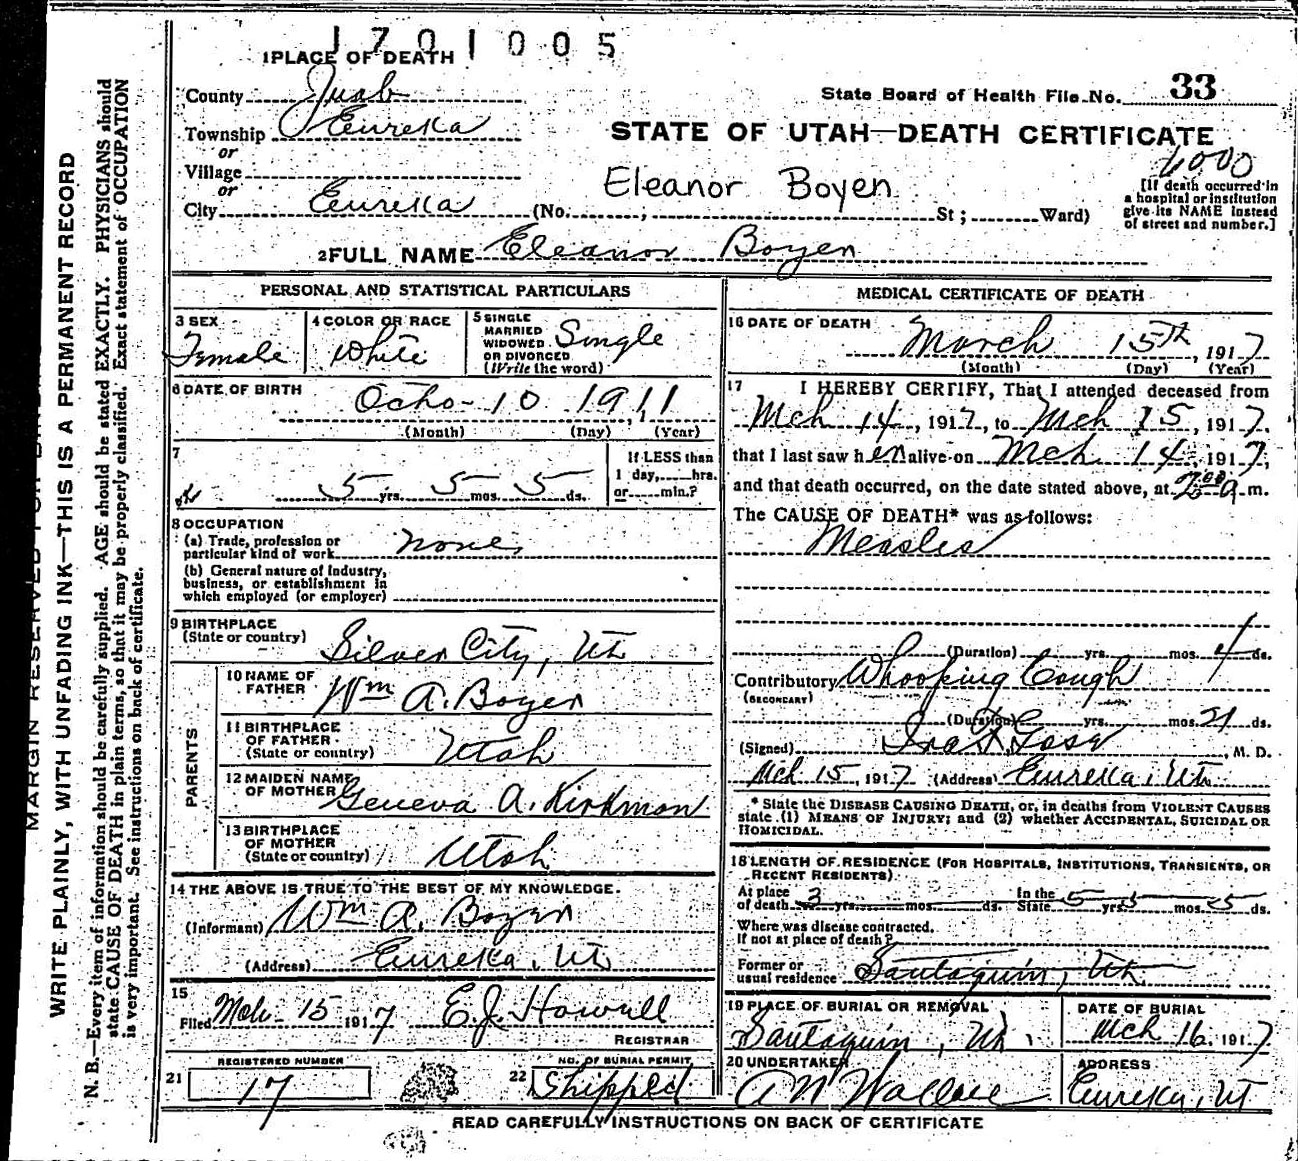 1701005
1 PLACE OF DEATH
County Juab
State Board of Health File No. 33
Township Eureka
STATE OF UTAH—DEATH CERTIFICATE
or
Village
or
Eleanor Boyen
[If death occurred in
a hospital or institution
give its NAME instead
of street and number.]
City Eureka (No. ; St; Ward)
2 FULL NAME Eleanor Boyen
PERSONAL AND STATISTICAL PARTICULARS
3 SEX Female
4 COLOR OR RACE White
5 SINGLE
MARRIED
WIDOWED
OR DIVORCED
(Write the word)
Single
6 DATE OF BIRTH
10 1911
(Month) (Day) (Year)
7
5 yrs. 5 mos. 5 ds.
If LESS than
1 day, hrs.
or min.?
8 OCCUPATION
(a) Trade, profession or
particular kind of work None
(b) General nature of industry,
business, or establishment in
which employed (or employer)
9 BIRTHPLACE
(State or country) Silver City, Ut
PARENTS
10 NAME OF
FATHER Wm A. Boyen
11 BIRTHPLACE
OF FATHER
(State or country) Utah
12 MAIDEN NAME
OF MOTHER Geneva A. Kirkman
13 BIRTHPLACE
OF MOTHER
(State or country) Utah
14 THE ABOVE IS TRUE TO THE BEST OF MY KNOWLEDGE.
(Informant) Wm A. Boyen
(Address) Eureka, Ut
15
Filed Mch 15 1917 E.J. Howell
REGISTRAR
21 REGISTERED NUMBER
17
22 NO. OF BURIAL PERMIT
Shipped
MEDICAL CERTIFICATE OF DEATH
16 DATE OF DEATH
March 15th, 1917
(Month) (Day) (Year)
17 I HEREBY CERTIFY, That I attended deceased from
Mch 14, 1917, to Mch 15, 1917.
that I last saw her alive on Mch 14, 1917,
and that death occurred, on the date stated above, at 2:00 a m.
The CAUSE OF DEATH* was as follows:
Measles
(Duration) yrs. mos. 4 ds.
Contributory Whooping Cough
(SECONDARY)
(Duration) yrs. mos. 21 ds.
(Signed) , M. D.
Mch 15, 1917 (Address) Eureka, Ut.
* State the DISEASE CAUSING DEATH, or, in deaths from VIOLENT CAUSES
state (1) MEANS OF INJURY; and (2) whether ACCIDENTAL, SUICIDAL OR
HOMICIDAL.
18 LENGTH OF RESIDENCE (FOR HOSPITALS, INSTITUTIONS, TRANSIENTS, OR
RECENT RESIDENTS)
At place
of death 3 yrs. mos. ds.
In the
State 5 yrs. 5 mos. 5 ds.
Where was disease contracted,
If not at place of death?
Former or
usual residence Santaquin, Ut
19 PLACE OF BURIAL OR REMOVAL
Santaquin, Ut.
DATE OF BURIAL
Mch 16, 1917
20 UNDERTAKER
Wallace
ADDRESS
Eureka, UT
READ CAREFULLY INSTRUCTIONS ON BACK OF CERTIFICATE
MARGIN RESERVED FOR
WRITE PLAINLY, WITH UNFADING INK—THIS IS A PERMANENT RECORD
N. B.—Every item of information should be carefully supplied. AGE should be stated EXACTLY. PHYSICIANS should
state CAUSE OF DEATH in plain terms, so that it may be properly classified. Exact statement of OCCUPATION
is very important. See instructions on back of certificate.